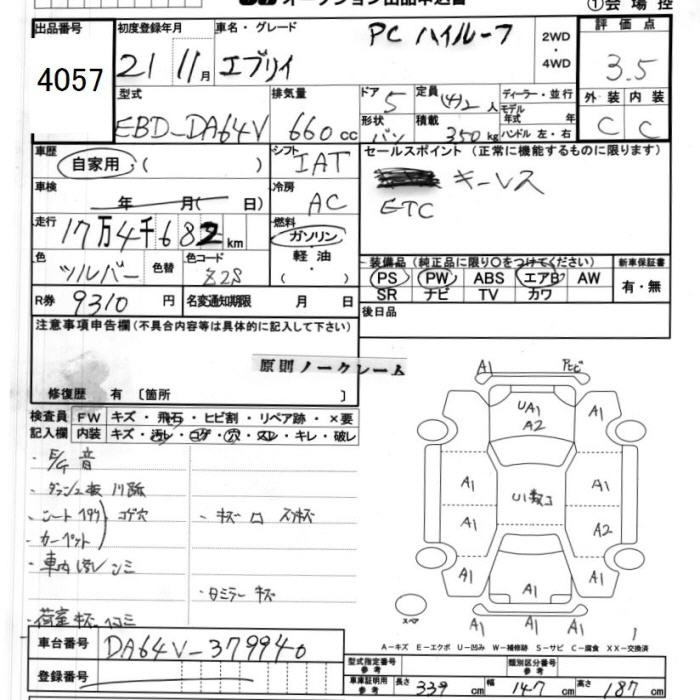 オークション出品申込書
①会場控
出品番号
4057
初度登録年月
21 11月
車名・グレード
エブリイ PC ハイルーフ
2WD
・
4WD
評価点
3.5
外装 内装
C C
型式
EBD-DA64V
排気量
660cc
ドア 5
形状 バン
定員 (4)2人
積載 350kg
ディーラー・並行
モデル年式 年
ハンドル 左・右
車歴
自家用 ( )
シフト
IAT
セールスポイント (正常に機能するものに限ります)
キーレス
ETC
車検
年 月( 日)
冷房
AC
走行
17万4千682km
燃料
ガソリン
軽油
・
( )
色
シルバー
色替
色コード
Z2S
装備品 (純正品に限り○をつけてください)
PS PW ABS エアB AW
SR ナビ TV カワ
新車保証書
有・無
R券 9310円
名変通知期限 月 日
後日品
注意事項申告欄(不具合内容等は具体的に記入して下さい)
原則ノークレーム
修復歴 有 〔箇所 〕
検査員記入欄
FW キズ・飛石・ヒビ割・リペア跡・×要
内装 キズ・汚レ・コゲ・穴・スレ・キレ・破レ
・E/G 音
・シート
コゲ穴
・カーペット
・キズ
・車内
・ミラー キズ
・荷室 キズ ヘコミ
A1
UA1
A2
A1 A1
A1 A1
A1 A2
A1 A1 A1
A1 A1 A1
スペア
A-キズ E-エクボ U-凹み W-補修跡 S-サビ C-腐食 XX-交換済
車台番号
DA64V-379940
登録番号
型式指定番号 参考
類別区分番号 参考
車庫証明用 参考
長さ 339cm 幅 147cm 高さ 187cm